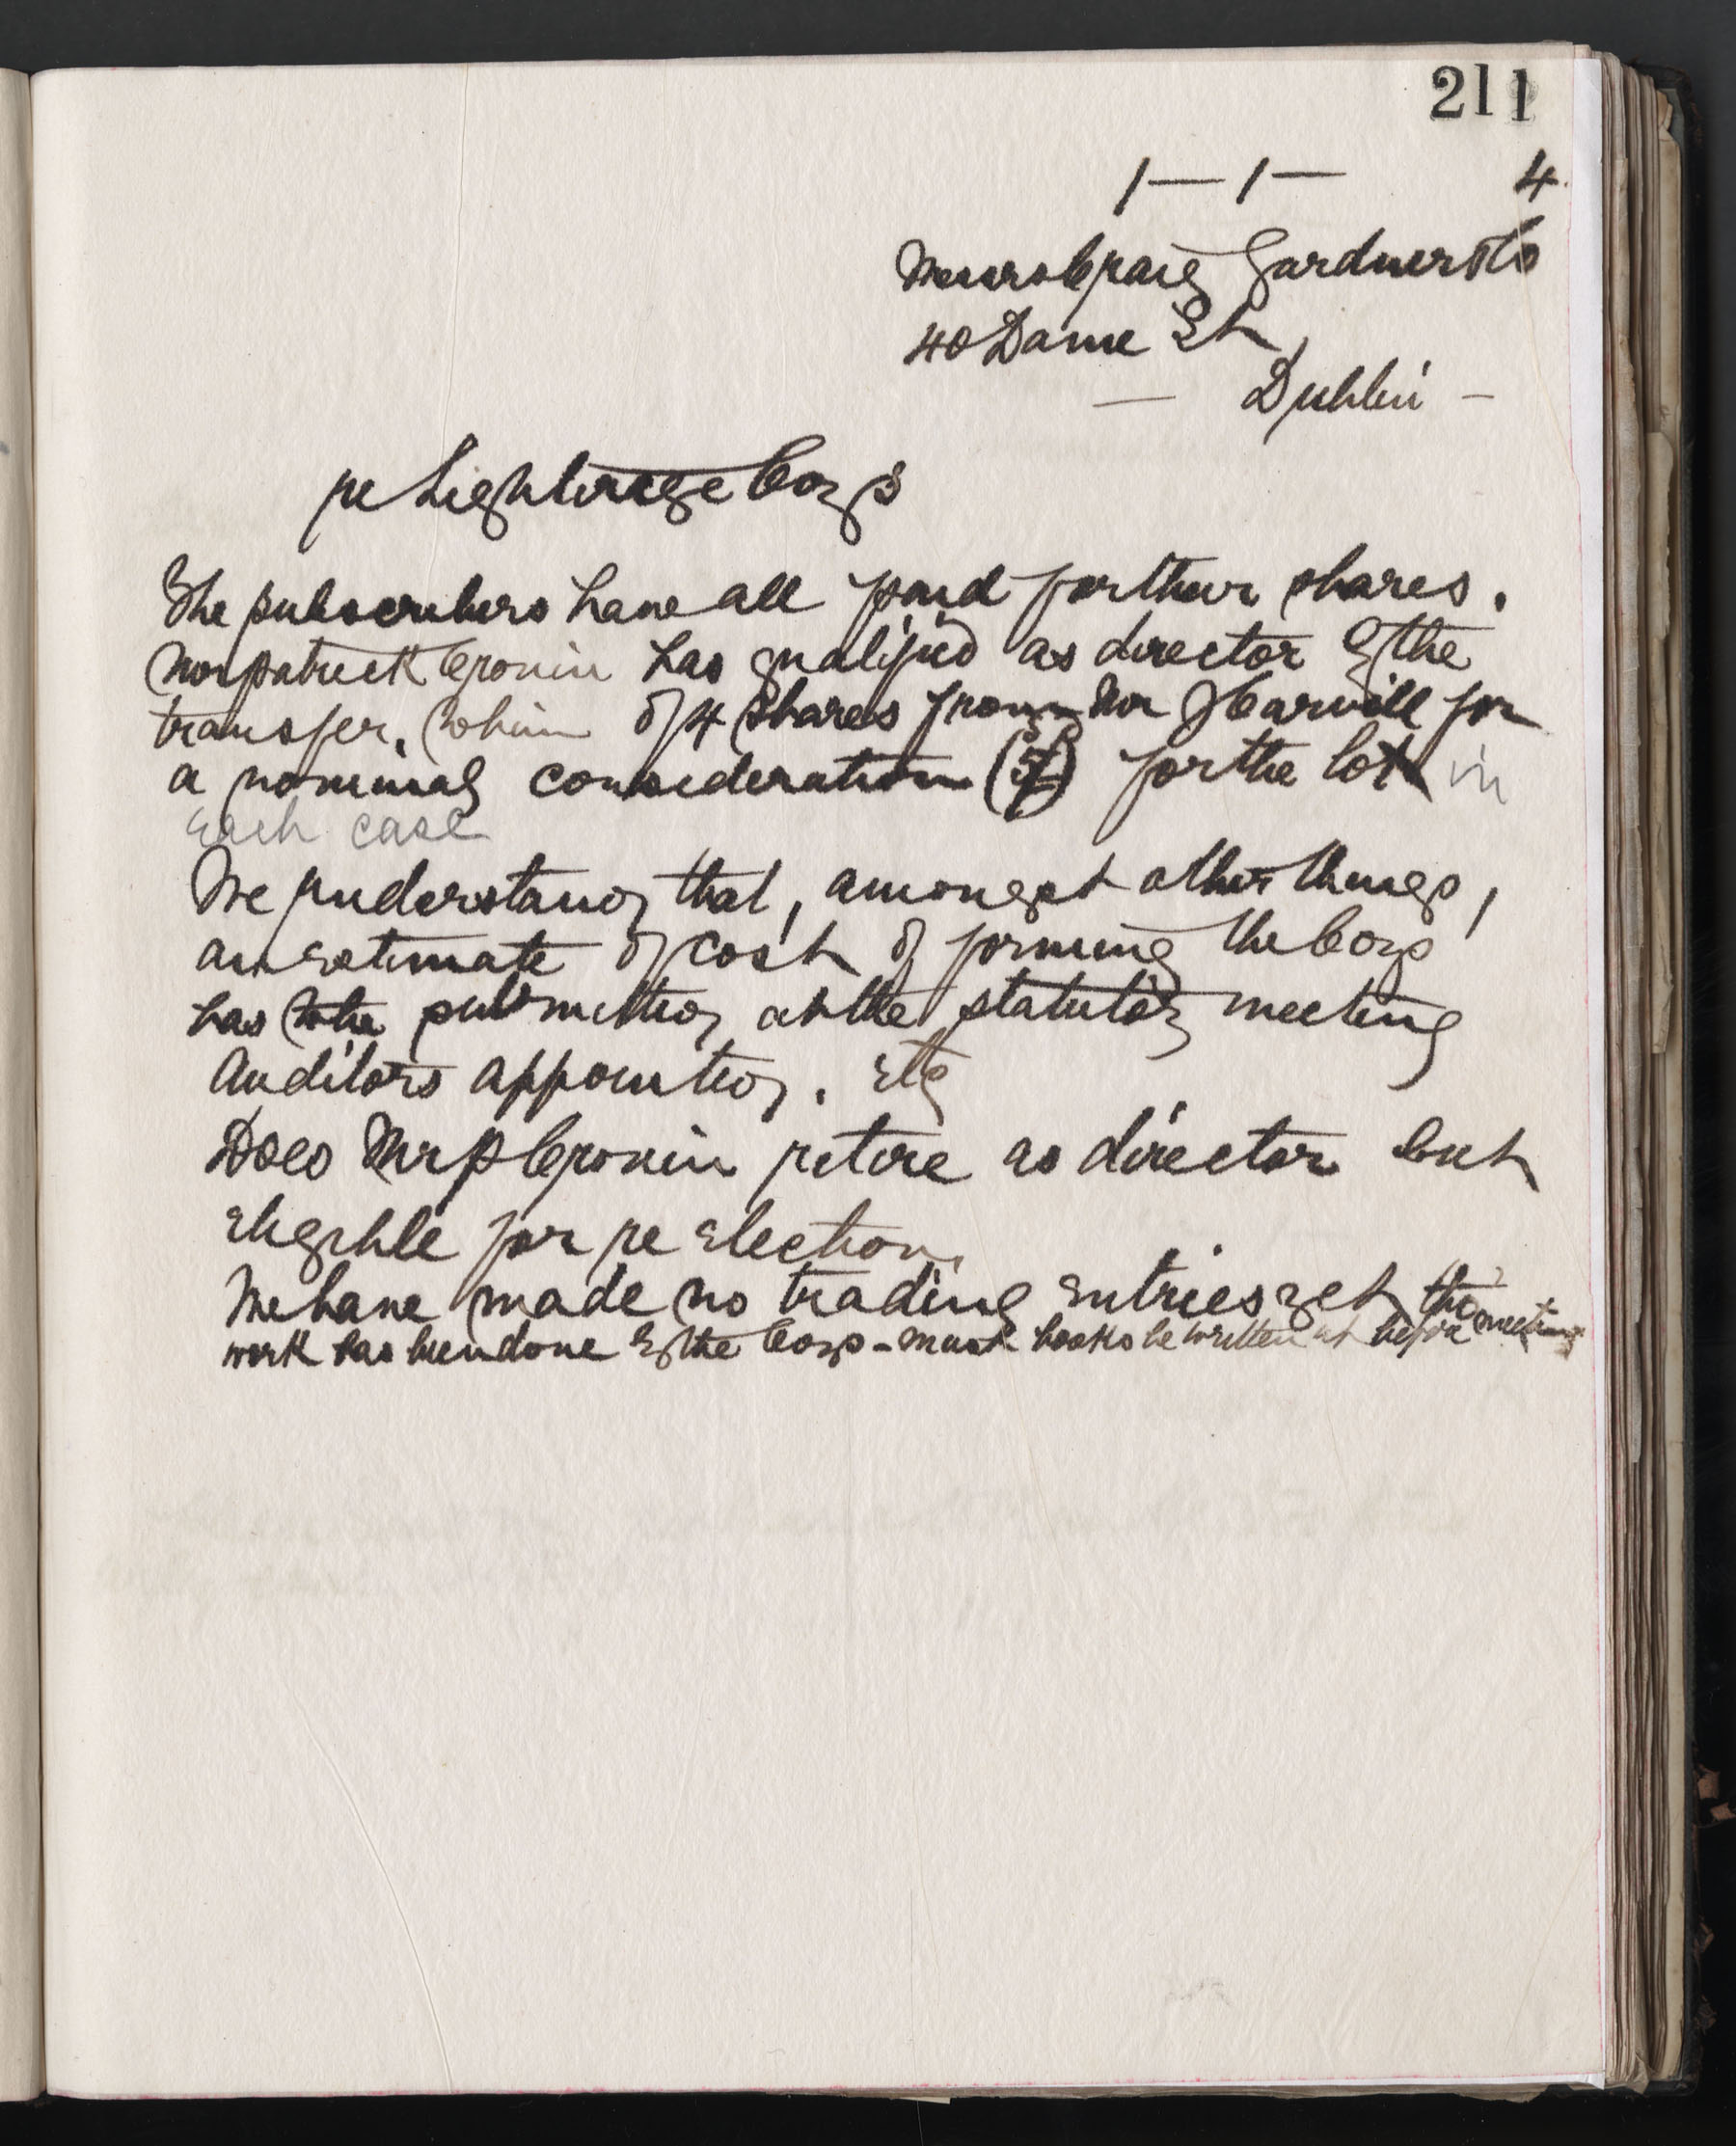 211
1 — 1 — 4
Messrs Craig Gardner & Co
40 Dame St,
— Dublin —
re Lighterage Coy's
The subscribers have all paid for their shares.
Mr Patrick Cronin has qualified as director by the
transfer, to him of 4 shares from Mr J Carvill for
a nominal consideration (5/) for the lot in
each case
We understand that, amongst other things,
an estimate of cost of forming the Coy
has to be submitted at the statutory meeting
Auditors appointed. etc
Does Mr P Cronin retire as director but
eligible for re election.
We have made no trading entries yet tho
work has been done by the Coy - must books be written up before meeting